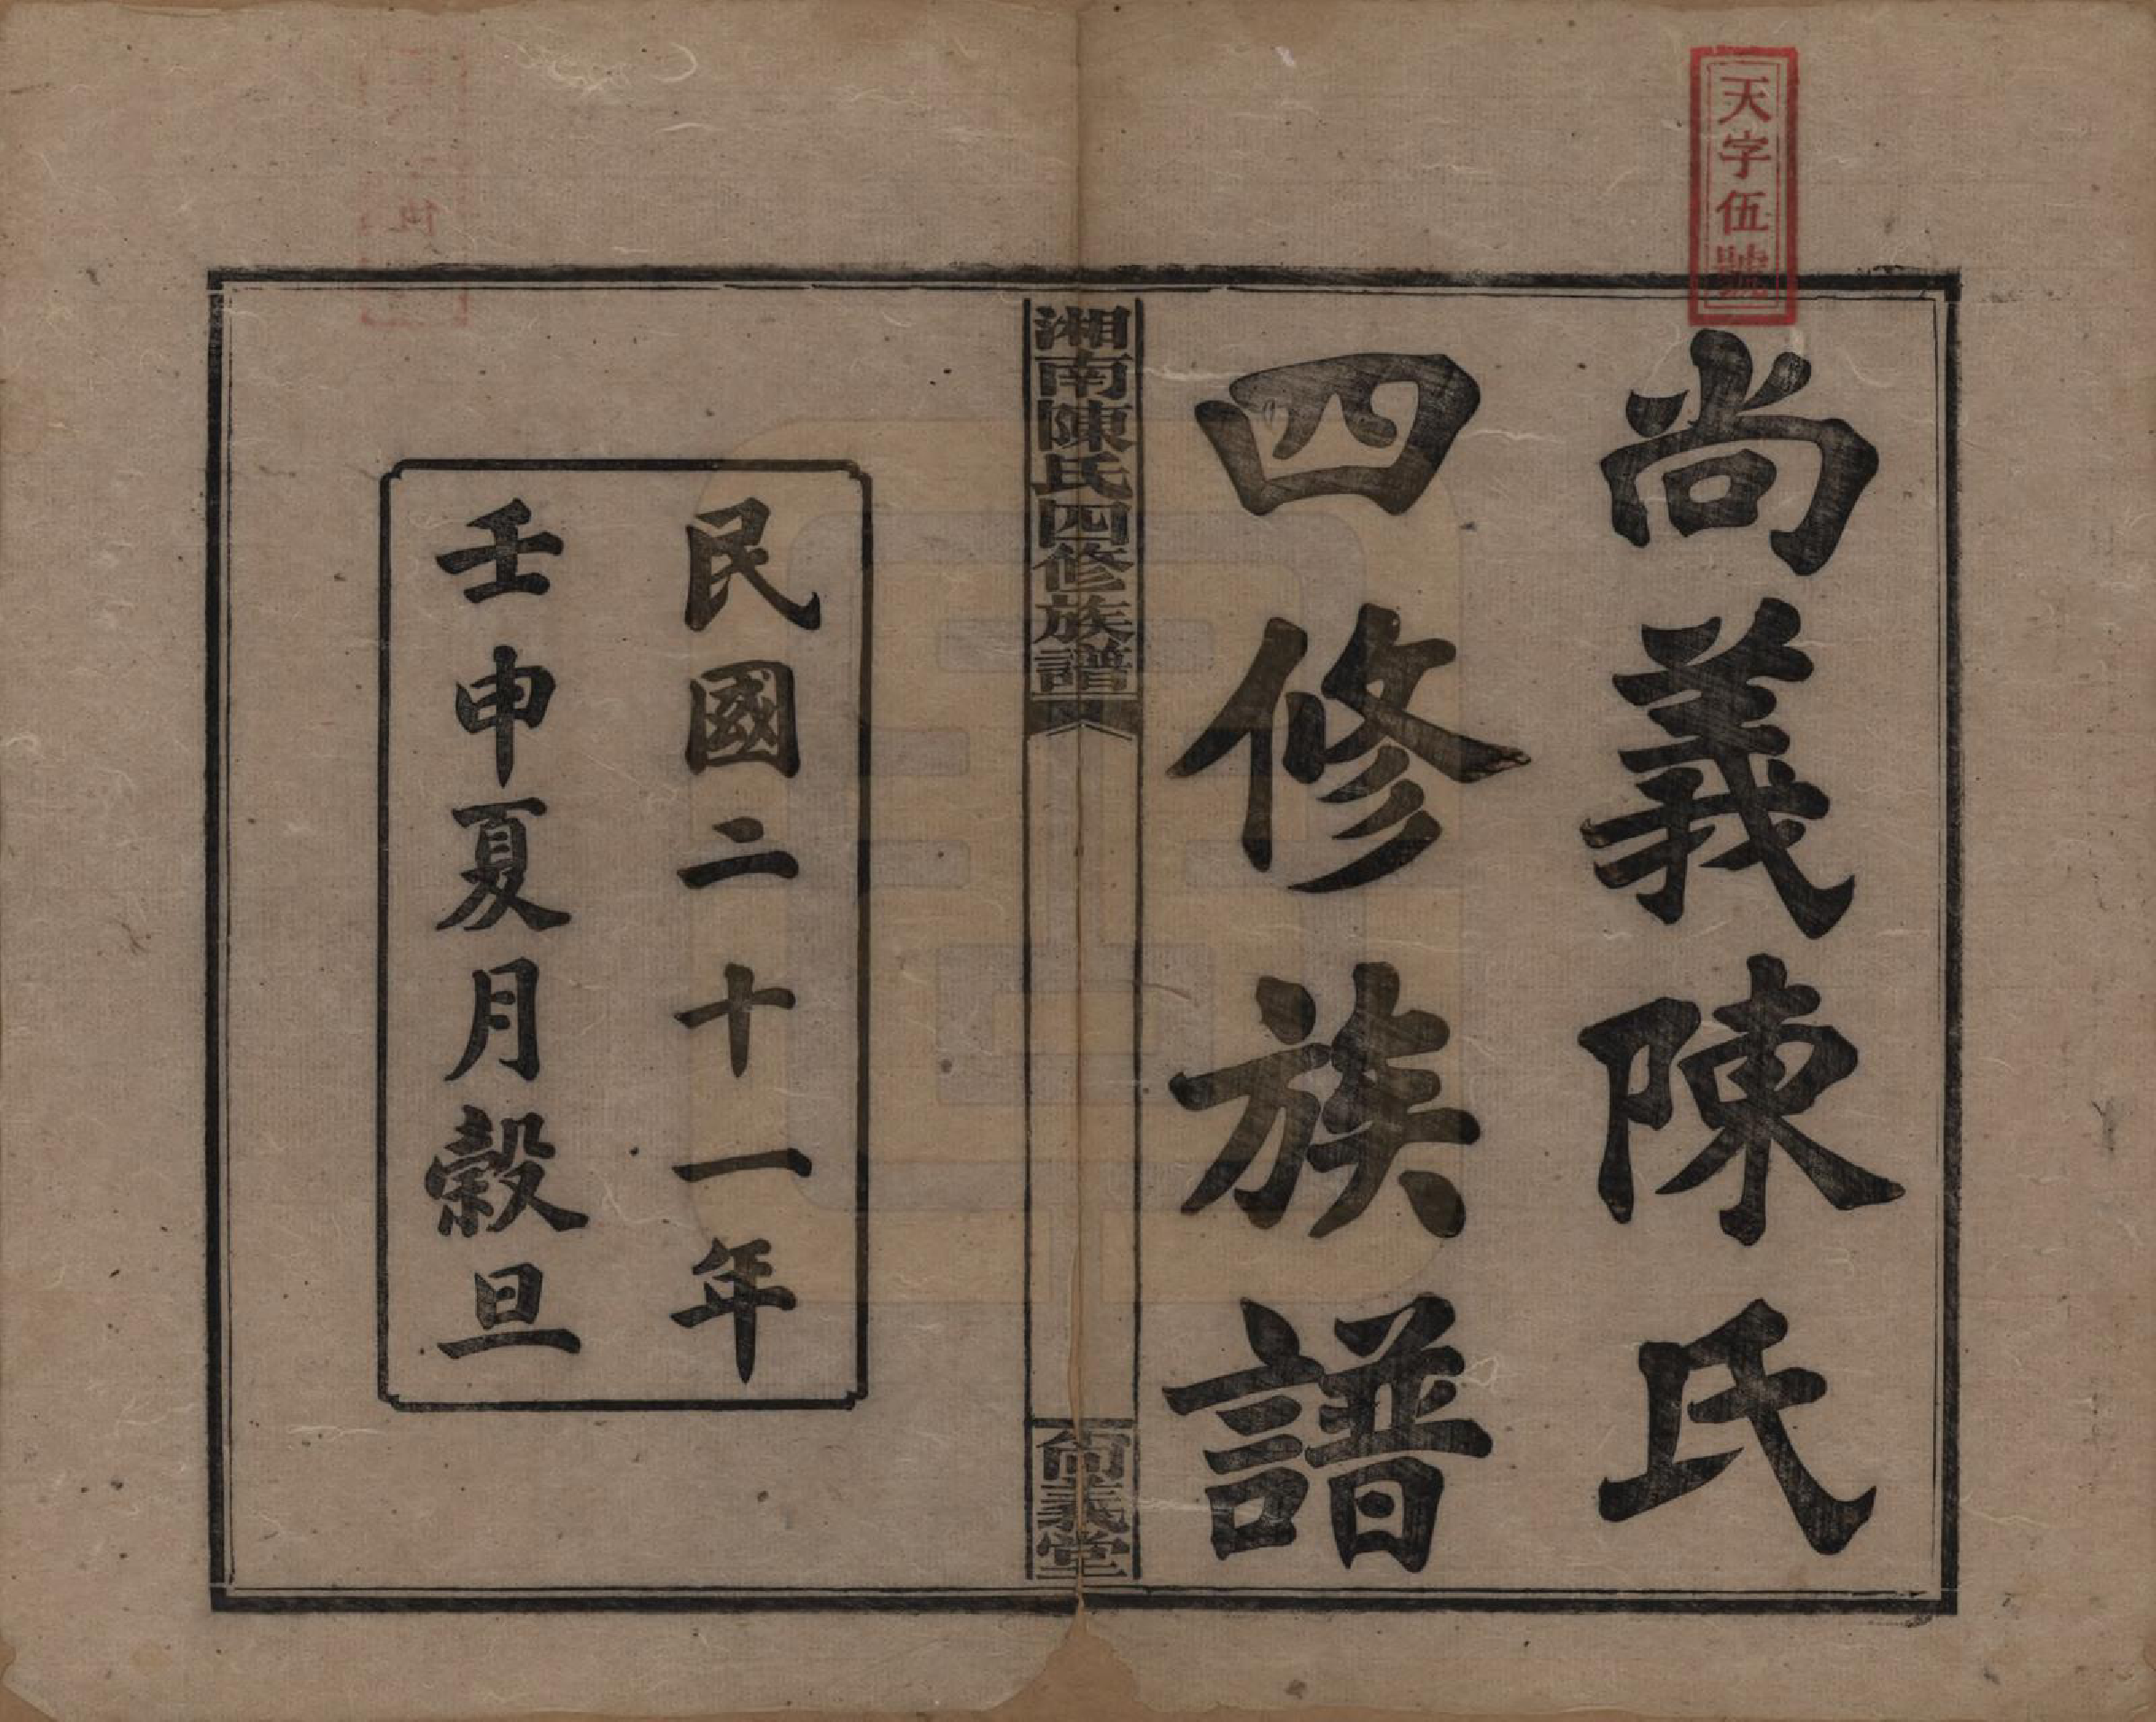 天字伍號
尚義陳氏
四修族譜
湘南陳氏四修族譜
尚義堂
民國二十一年
壬申夏月穀旦